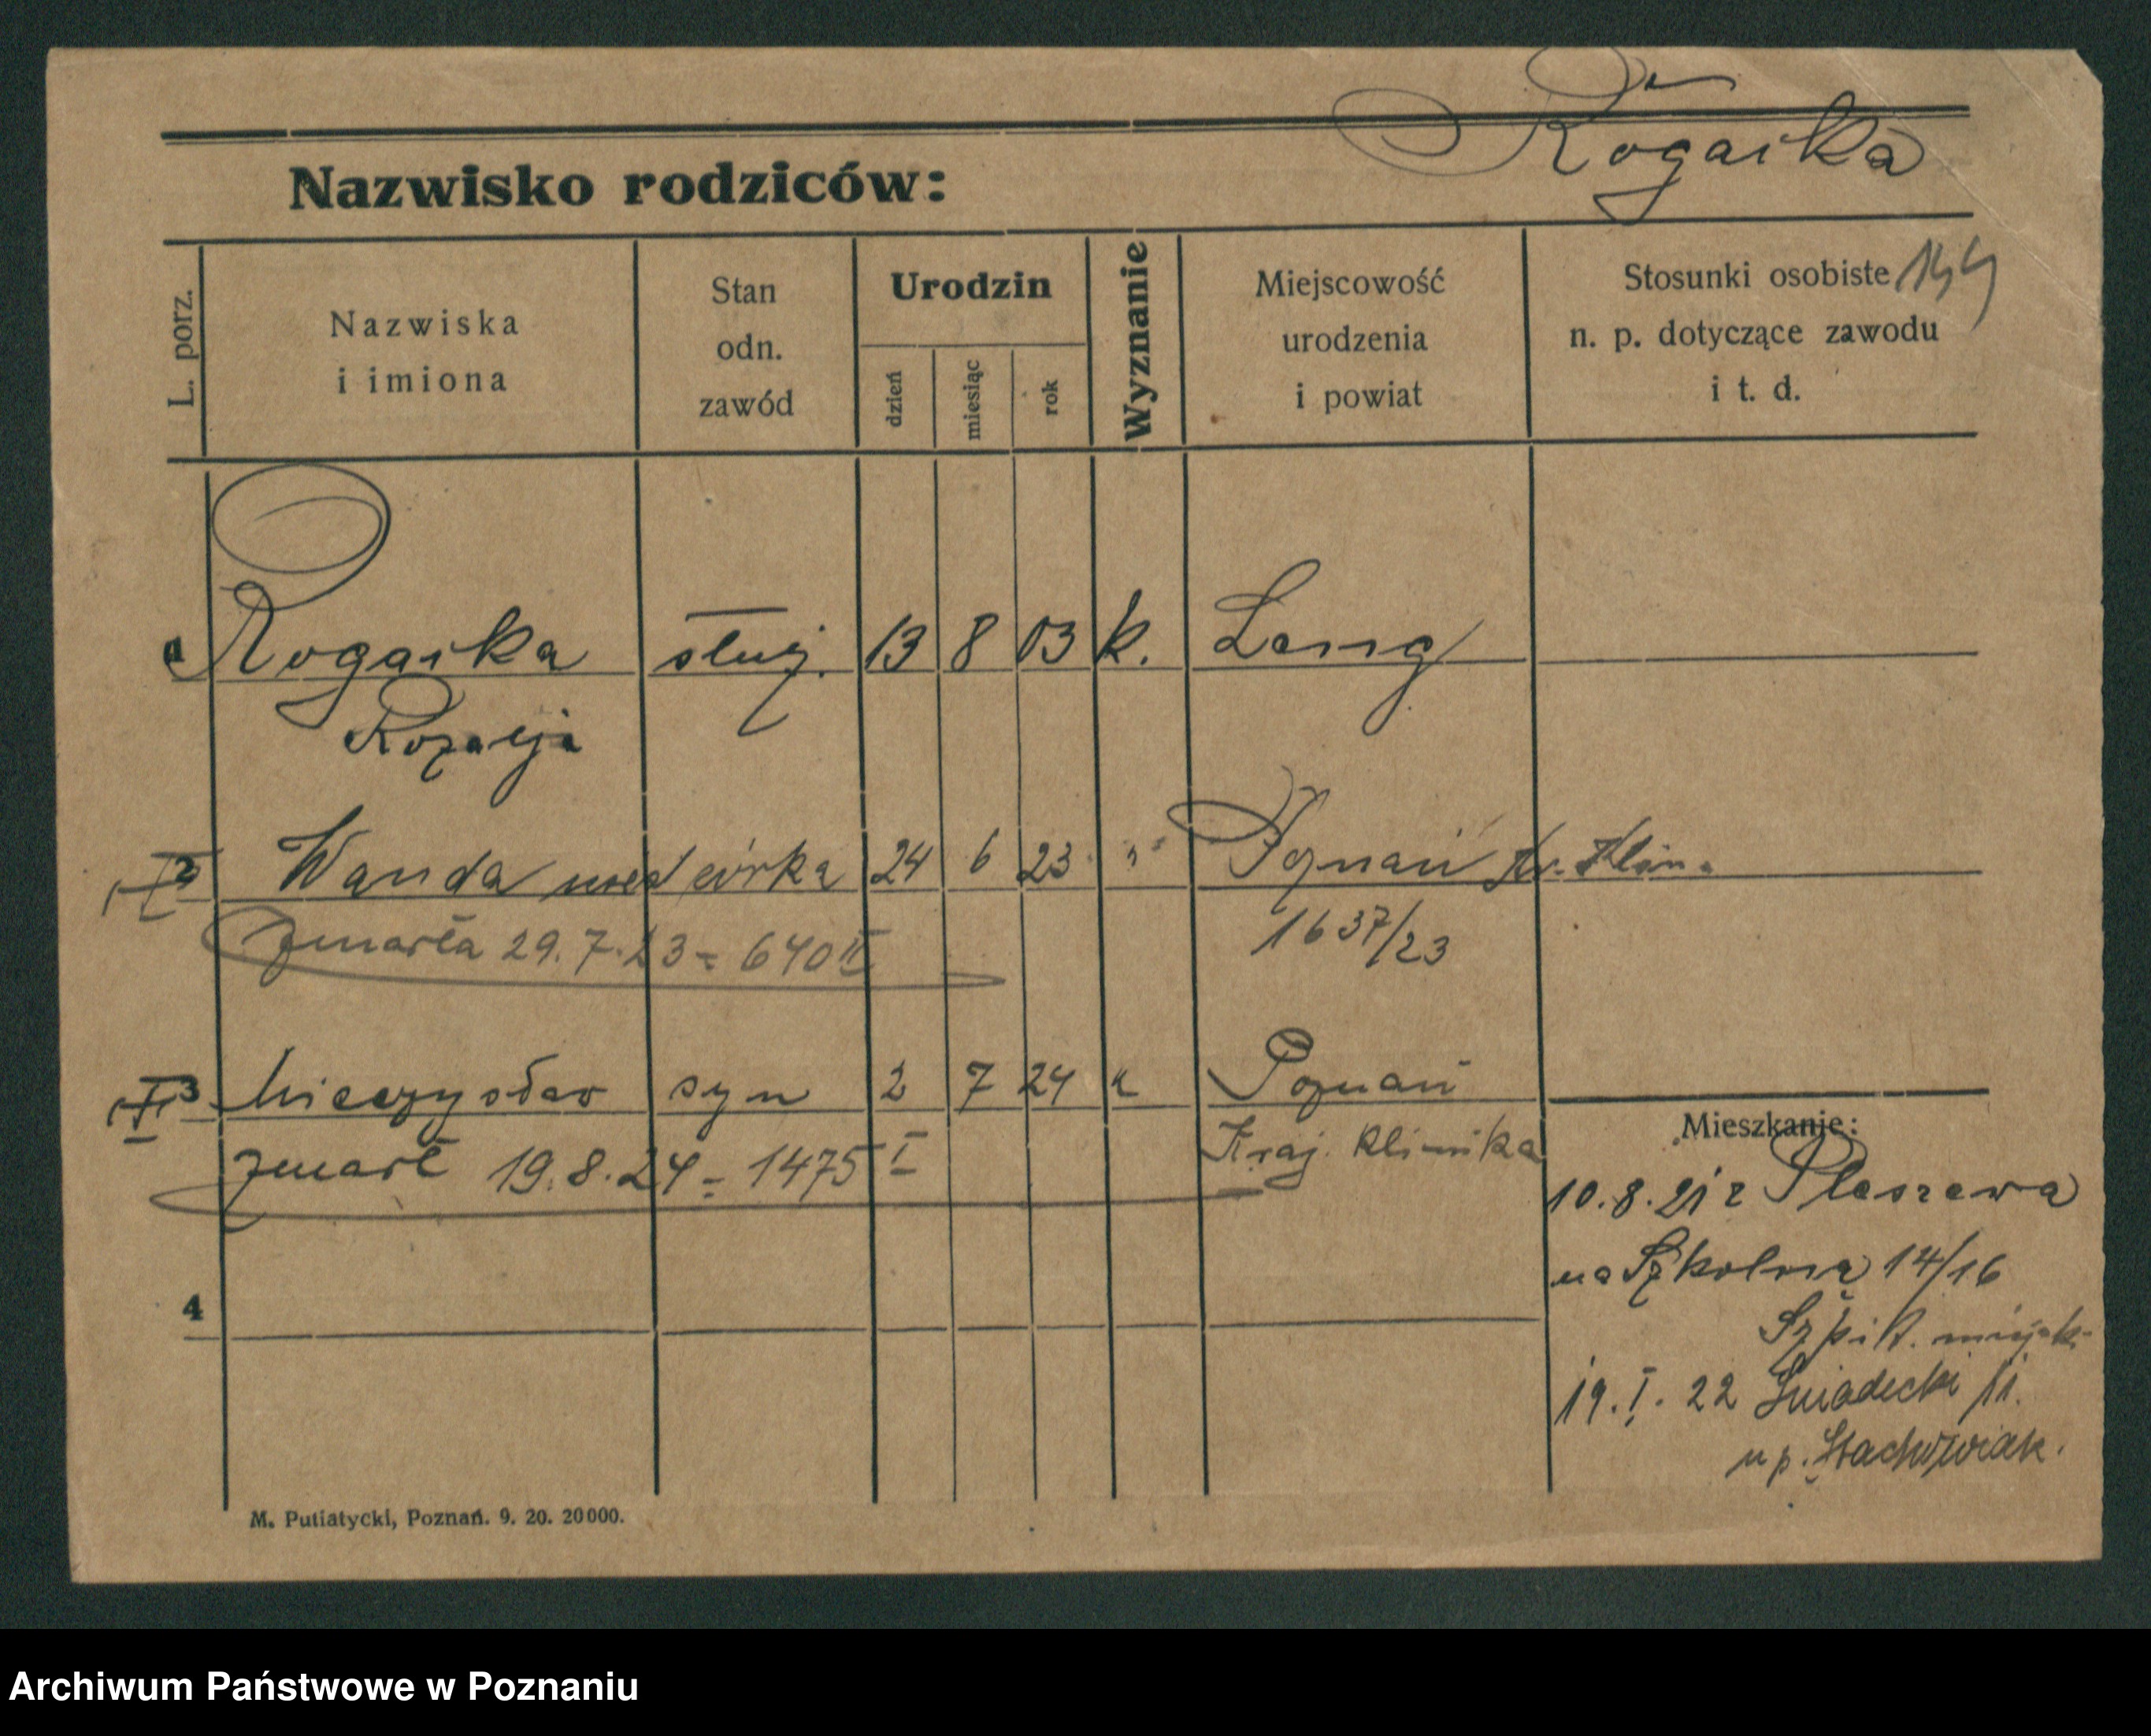 Rogaska
Nazwisko rodziców:
L. porz.
Nazwiska
i imiona
Stan
odn.
zawód
Urodzin
dzień
miesiąc
rok
Wyznanie
Miejscowość
urodzenia
i powiat
Stosunki osobiste 144
n. p. dotyczące zawodu
i t. d.
1 Rogaska służ. 13 8 03 k. Lang
Rozalja
2 Wanda córka 24 6 23 " Poznań Kr. Klin.
Zmarła 29.7.23 = 640 II
1637/23
3 Mieczysław syn 2 7 24 k Poznań
zmarł 19.8.24 = 1475 I
Kraj. Klinika
4
Mieszkanie:
10.8.21 z Pleszewa
na Szkolną 14/16
Szpit. miejsk.
19. I. 22 Śniadecki 11.
u p. Stachowiak.
M. Putiatycki, Poznań. 9. 20. 20000.
Archiwum Państwowe w Poznaniu